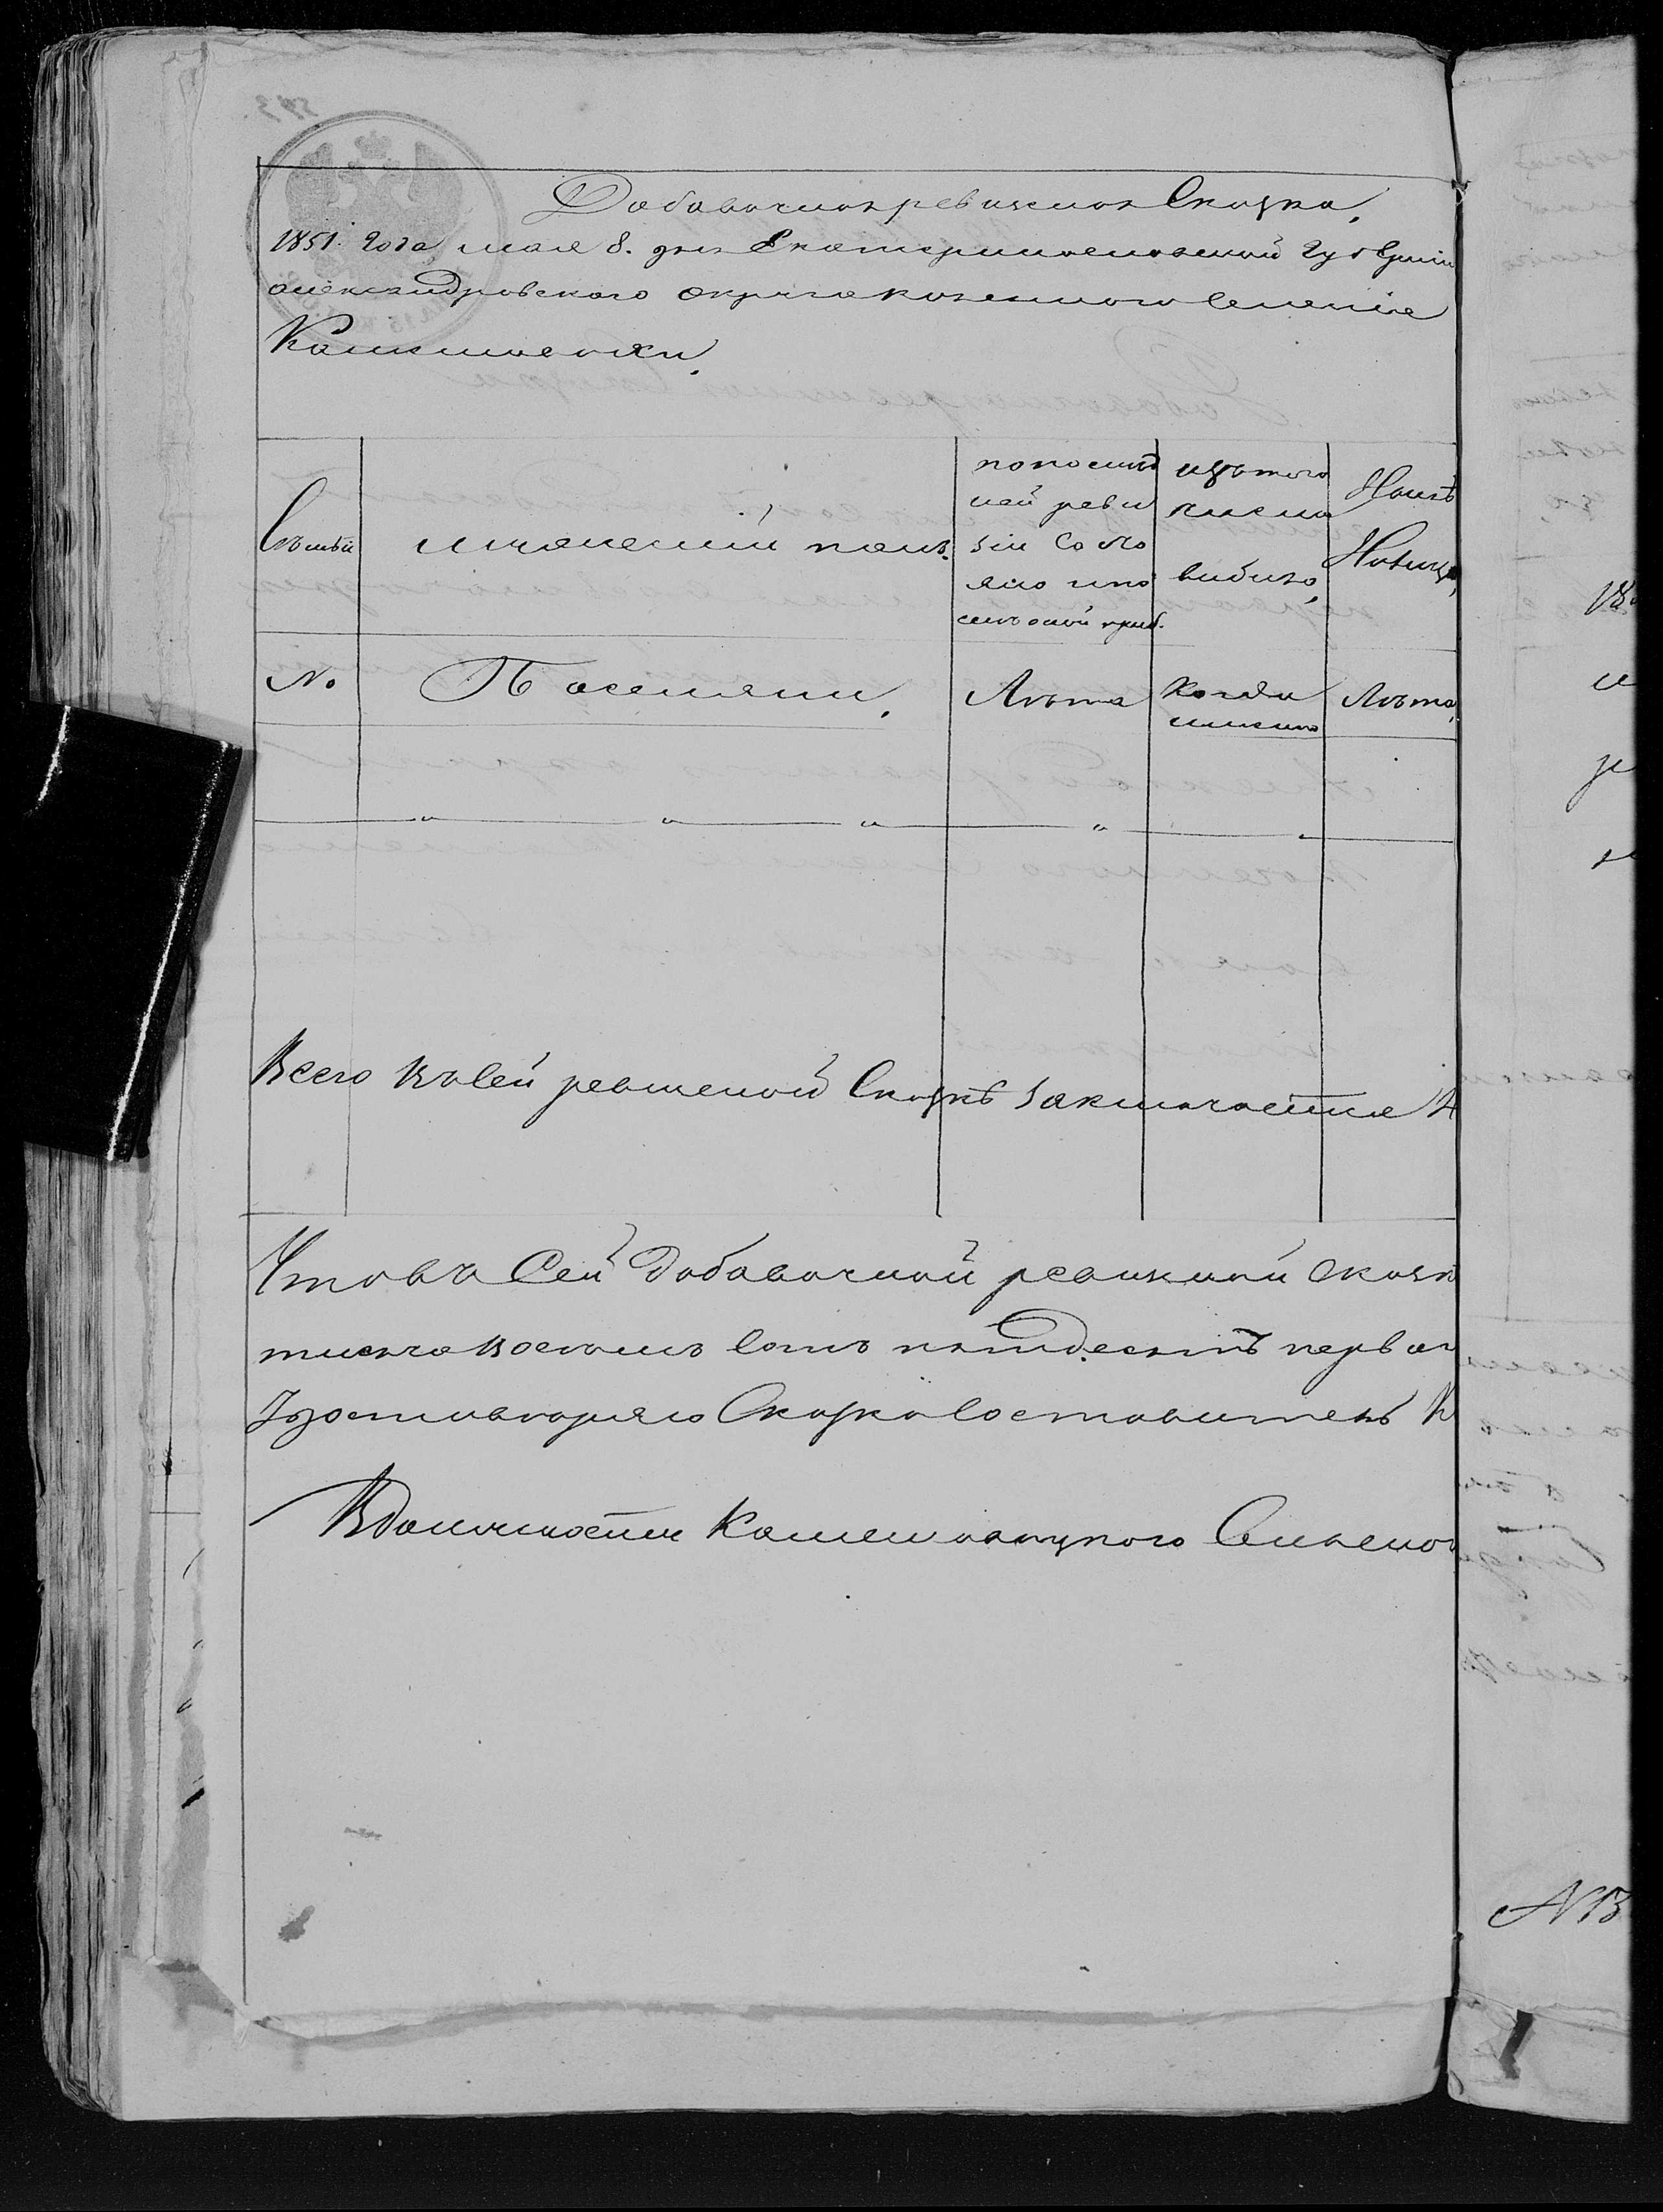 Добавочная ревизская Сказка,
1851. года, мая 8. дня Екатеринославской губерніи
александровского округа казенного Селенія
Семьи
мужеский полъ.
по послѣд
ней реви
зіи Состо
яло и по
слѣ оной приб.
изъ того
числа
выбыло,
Нынѣ
Налицо,
№
Поселяни,
Лѣта
Когда
имѣнно
Лѣта,
Всего въ Сей ревизской Сказкѣ заключается
Что въ Сей добавочной ревизкой сказк
тысяча восемь Сотъ пятдесятъ перваг
Удостоверяю Сказко Составитель К
В должности Сельског
№